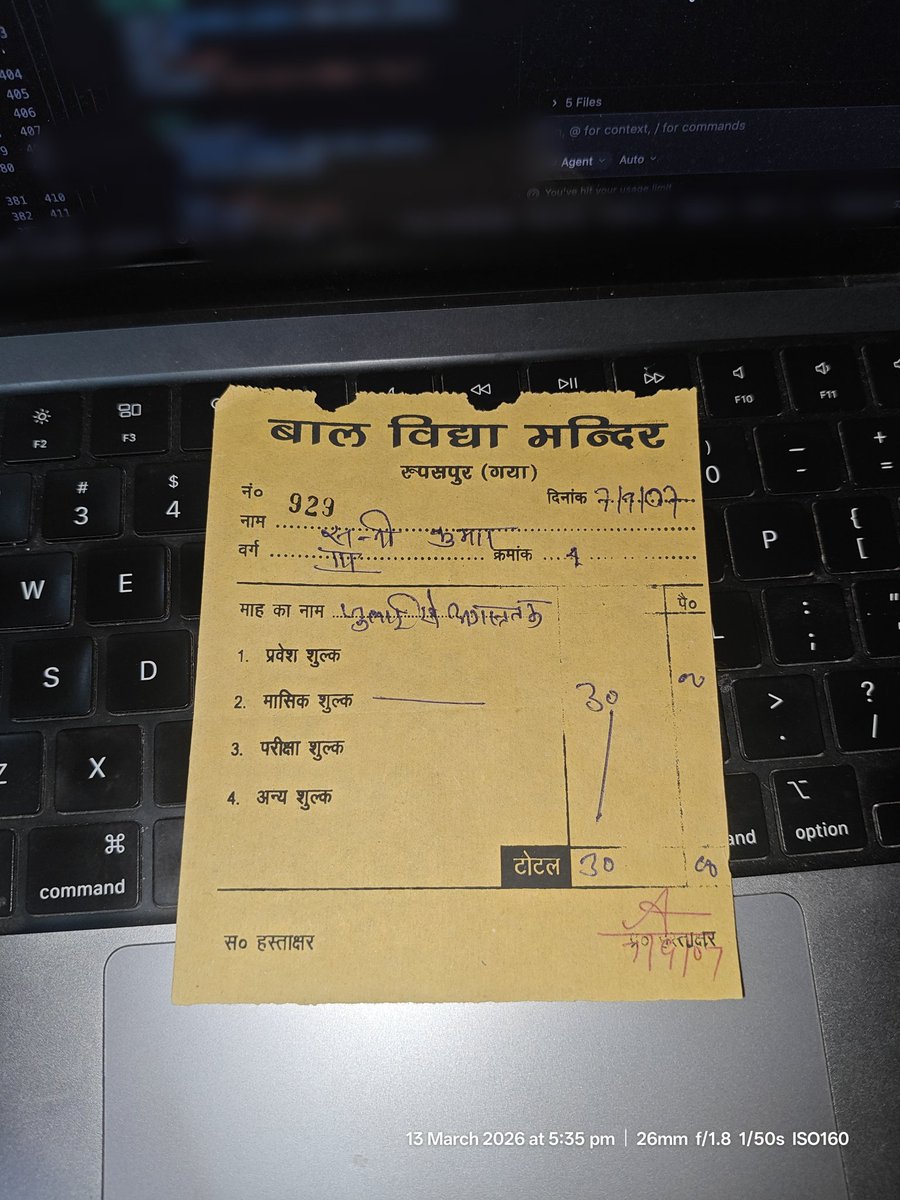 404
405
406
407
381 410
382 411
> 5 Files
@ for context, / for commands
Agent Auto
You've hit your usage limit
F2 F3 F10 F11
# 3 $ 4 0 - + =
W E P { [
S D : ; "
X > . ? /
command option
बाल विद्या मन्दिर
रूपसपुर (गया)
नं० 929 दिनांक 7/9/07
नाम सन्नी कुमार
वर्ग III क्रमांक 1
पै०
माह का नाम जुलाई से अगस्त तक
1. प्रवेश शुल्क
2. मासिक शुल्क 30
3. परीक्षा शुल्क
4. अन्य शुल्क
टोटल 30
स० हस्ताक्षर प्र० हस्ताक्षर
7/9/07
13 March 2026 at 5:35 pm | 26mm f/1.8 1/50s ISO160